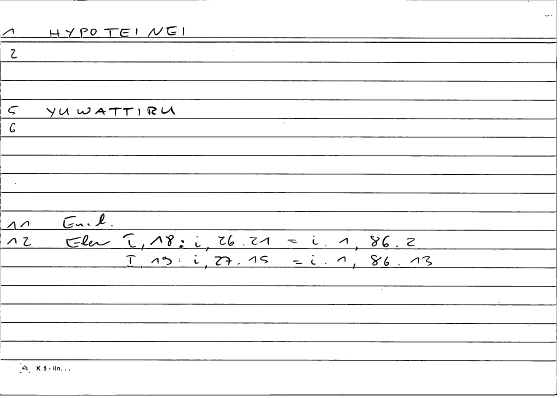 1 HYPOTEINEI
2
5 YUWATTIRU
6
11 Eucl.
12 Elem I, 18: i, 26.21 = i. 1, 86.2
I, 19: i, 27.15 = i. 1, 86.13